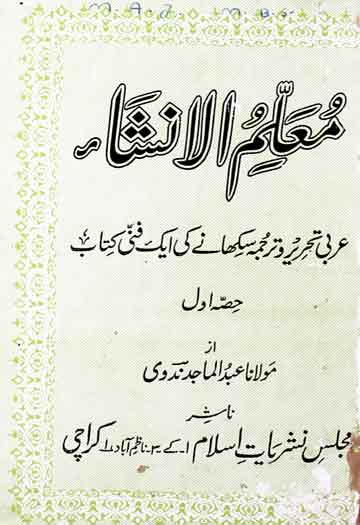 M. A. J. M. B. S.
مُعَلِّمُ الانشَاء
عربی تحریر و ترجمہ سکھانے کی ایک فنّی کتاب
حصہ اول
از
مولانا عبدُ الماجد ندوی
ناشر
مجلس نشریاتِ اسلام ۱۔کے۔۳۔ ناظم آباد ۱ کراچی